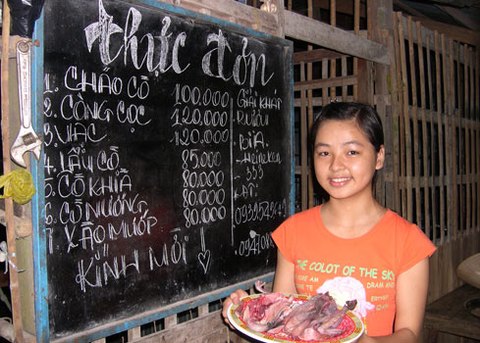 thực đơn
1. CHÁO CÒ 100.000
2. CÒNG CỌC 120.000
3. VẠC 120.000
4. LẨU CÒ 85.000
5. CÒ KHÌA 80.000
6. CÒ NƯỚNG 80.000
7. XÀO MƯỚP 80.000
KÍNH MỜI !
GIẢI KHÁT
RƯỢU
BIA
- Heineken
- 333
THE COLOT OF THE SKY